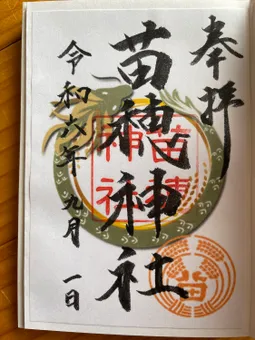 奉拝
苗穂神社
令和六年 九月 一日
苗穂
神社
苗